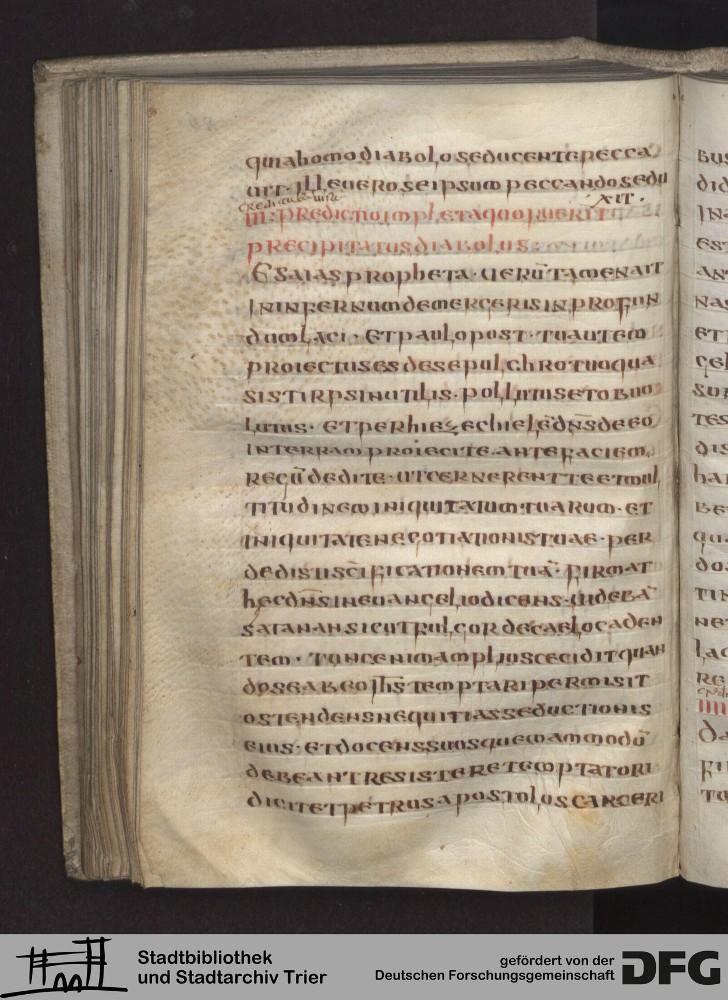 quiahomodiaboloseducentepecca
uit· illeueroseipsumpeccandosedu
xit·
III· predictioimpletaquofuerit
precipitatusdiabolus:
Esaiaspropheta· uerūtamenait
ininfernumdemergerisinprofun
dumlaci· etpaulopost· tuautem
proiectusesdesepulchrotuoqua
sistirpsinutilis· pollutusetobuo
lutus· etperhiezechielēdn̄sdeeo
interramproiecite. antefaciem
regūdedite· utcernerentteetmul
titudineminiquitatumtuarum· et
iniquitatenegotiationistuae· per
dedistiscīficationemtuā· firmat
hecdn̄sineuangeliodicens· uidebā
satanansicutfulgordecaelocaden
tem· tuncenimampliusceciditquan
doseabeoih̄stemptaripermisit
ostendensnequitiasseductionis
eius· etdocenssuosquemammodū
debeantresisteretemptatori
dicitetpetrusapostoloscarceri
bus
did
in
est
an
nas
et
cel
sur
tes
dis
ha
be
qu
do
tin
ne
lac
re
IIII
da
fi
tu
Stadtbibliothek
und Stadtarchiv Trier
gefördert von der
Deutschen Forschungsgemeinschaft
DFG